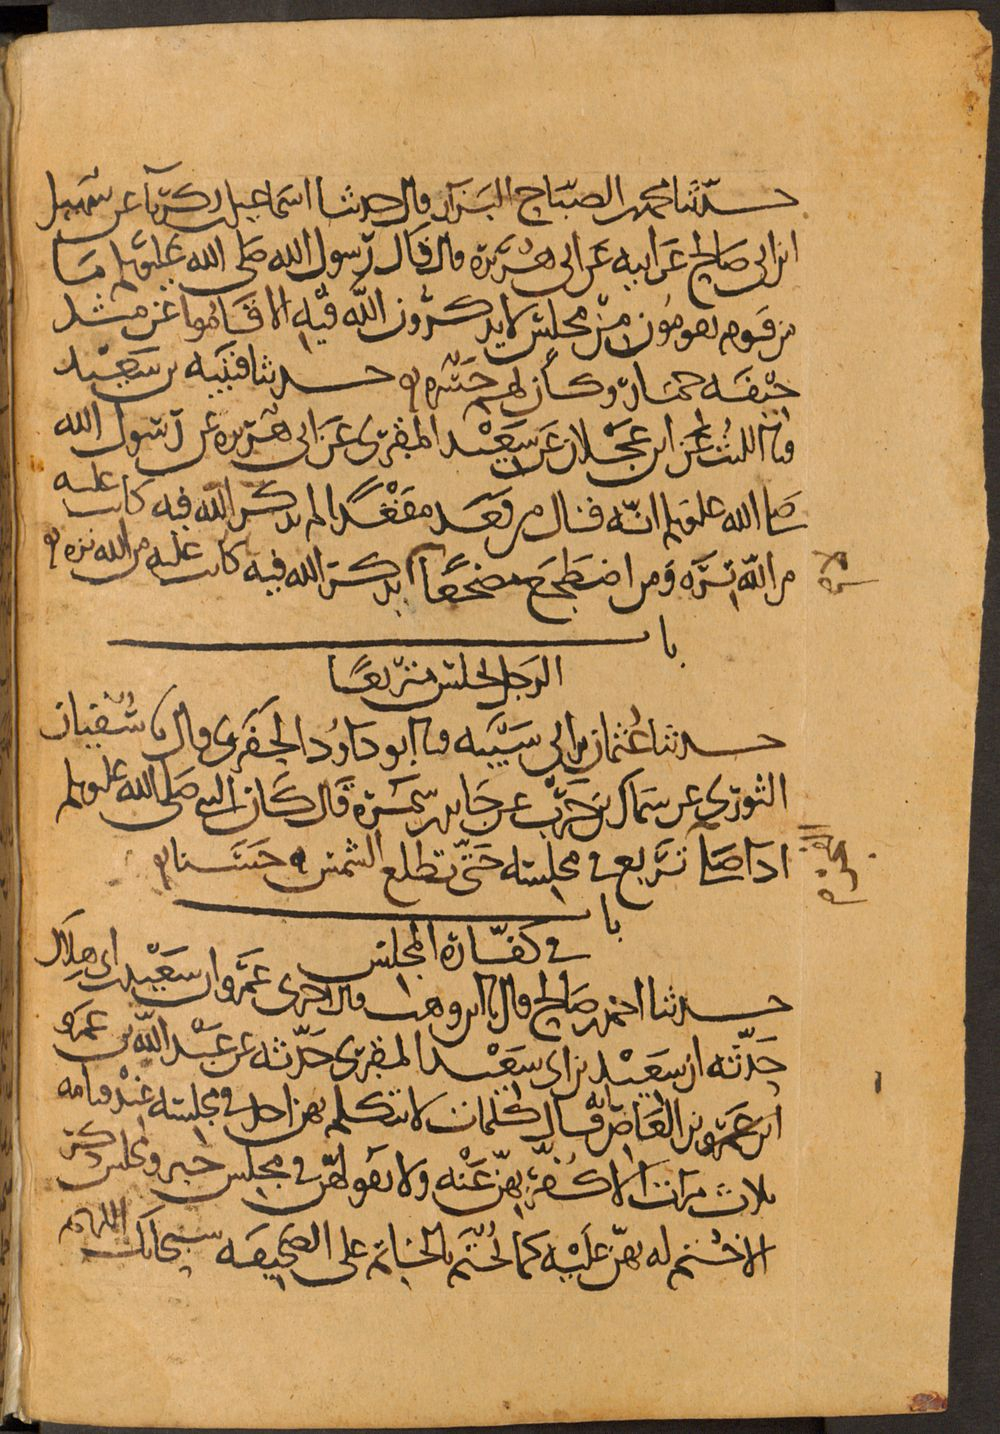 حدثنا محمد بن الصباح البزاز قال حدثنا اسماعيل بن زكريا عن سهيل
ابن ابي صالح عن ابيه عن ابي هريرة قال قال رسول الله صلى الله عليه وسلم ما
من قوم يقومون من مجلس لا يذكرون الله فيه الا قاموا عن مثل
جيفة حمار وكان لهم حسرة ه حدثنا قتيبة بن سعيد
قال نا الليث عن ابن عجلان عن سعيد المقبري عن ابي هريرة عن رسول الله
صلى الله عليه وسلم انه قال من قعد مقعدا لم يذكر الله فيه كانت عليه
من الله ترة ومن اضطجع مضجعا لا يذكر الله فيه كانت عليه من الله ترة ه
باب
الرجل يجلس متربعا
حدثنا عثمان بن ابي شيبة قال نا ابو داود الحفري قال نا سفيان
الثوري عن سماك بن حرب عن جابر بن سمرة قال كان النبي صلى الله عليه وسلم
اذا صلى الفجر تربع في مجلسه حتى تطلع الشمس حسناء ه
باب
في كفارة المجلس
حدثنا احمد بن صالح قال نا ابن وهب قال اخبرني عمرو ان سعيد بن ابي هلال
حدثه ان سعيد بن ابي سعيد المقبري حدثه عن عبد الله بن عمرو
ابن العاص انه قال كلمات لا يتكلم بهن احد في مجلسه عند قيامه
ثلاث مرات الا كفر بهن عنه ولا يقولهن في مجلس خير ومجلس ذكر
الا ختم له بهن عليه كما يختم بالخاتم على الصحيفة سبحانك اللهم